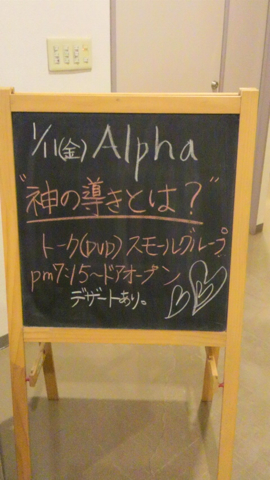 1/11(金) Alpha
"神の導きとは?"
トーク(DVD) スモールグループ
pm7:15〜ドアオープン
デザートあり。